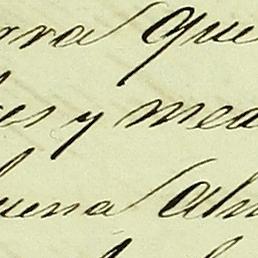 rra que
es y med
uena alm